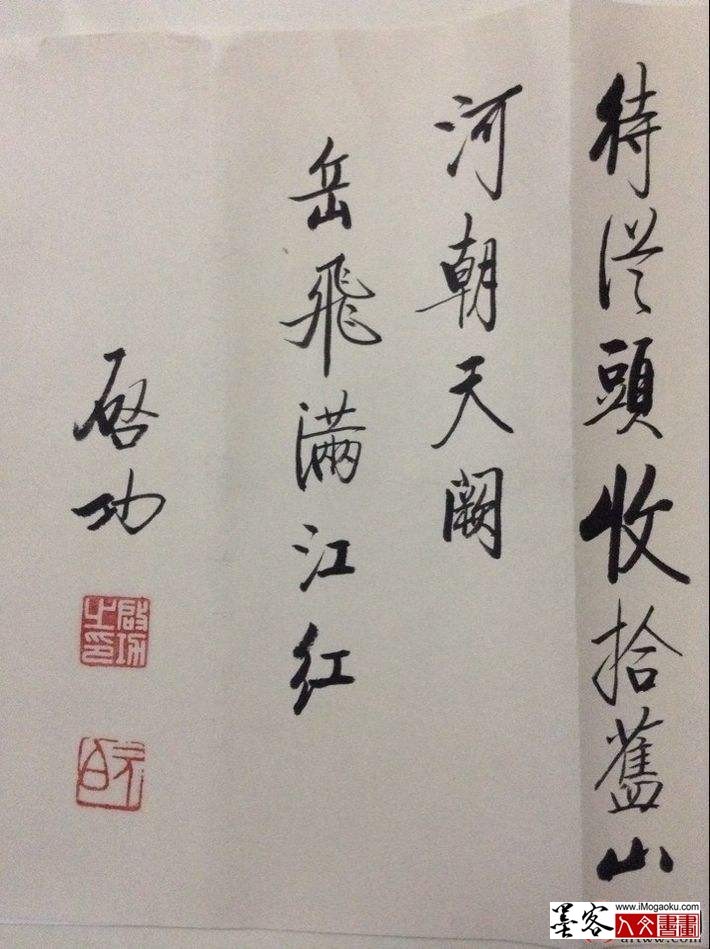 待從頭收拾舊山
河朝天闕
岳飛滿江红
啓功
啟功之印
元白
www.iMogaoku.com
墨客人文書畫